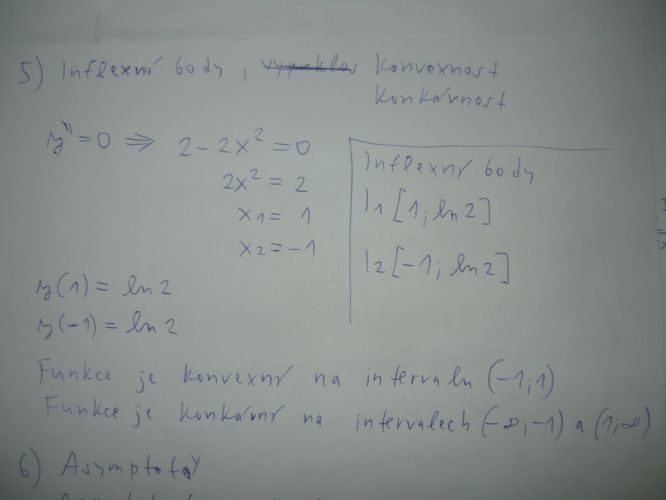 5) Inflexní body, vypuklos konvexnost
konkávnost
y''=0 ⇒ 2-2x²=0
2x²=2
x₁=1
x₂=-1
Inflexní body
I₁[1; ln2]
I₂[-1; ln2]
y(1)=ln2
y(-1)=ln2
Funkce je konvexní na intervalu (-1;1)
Funkce je konkávní na intervalech (-∞;-1) a (1;∞)
6) Asymptoty